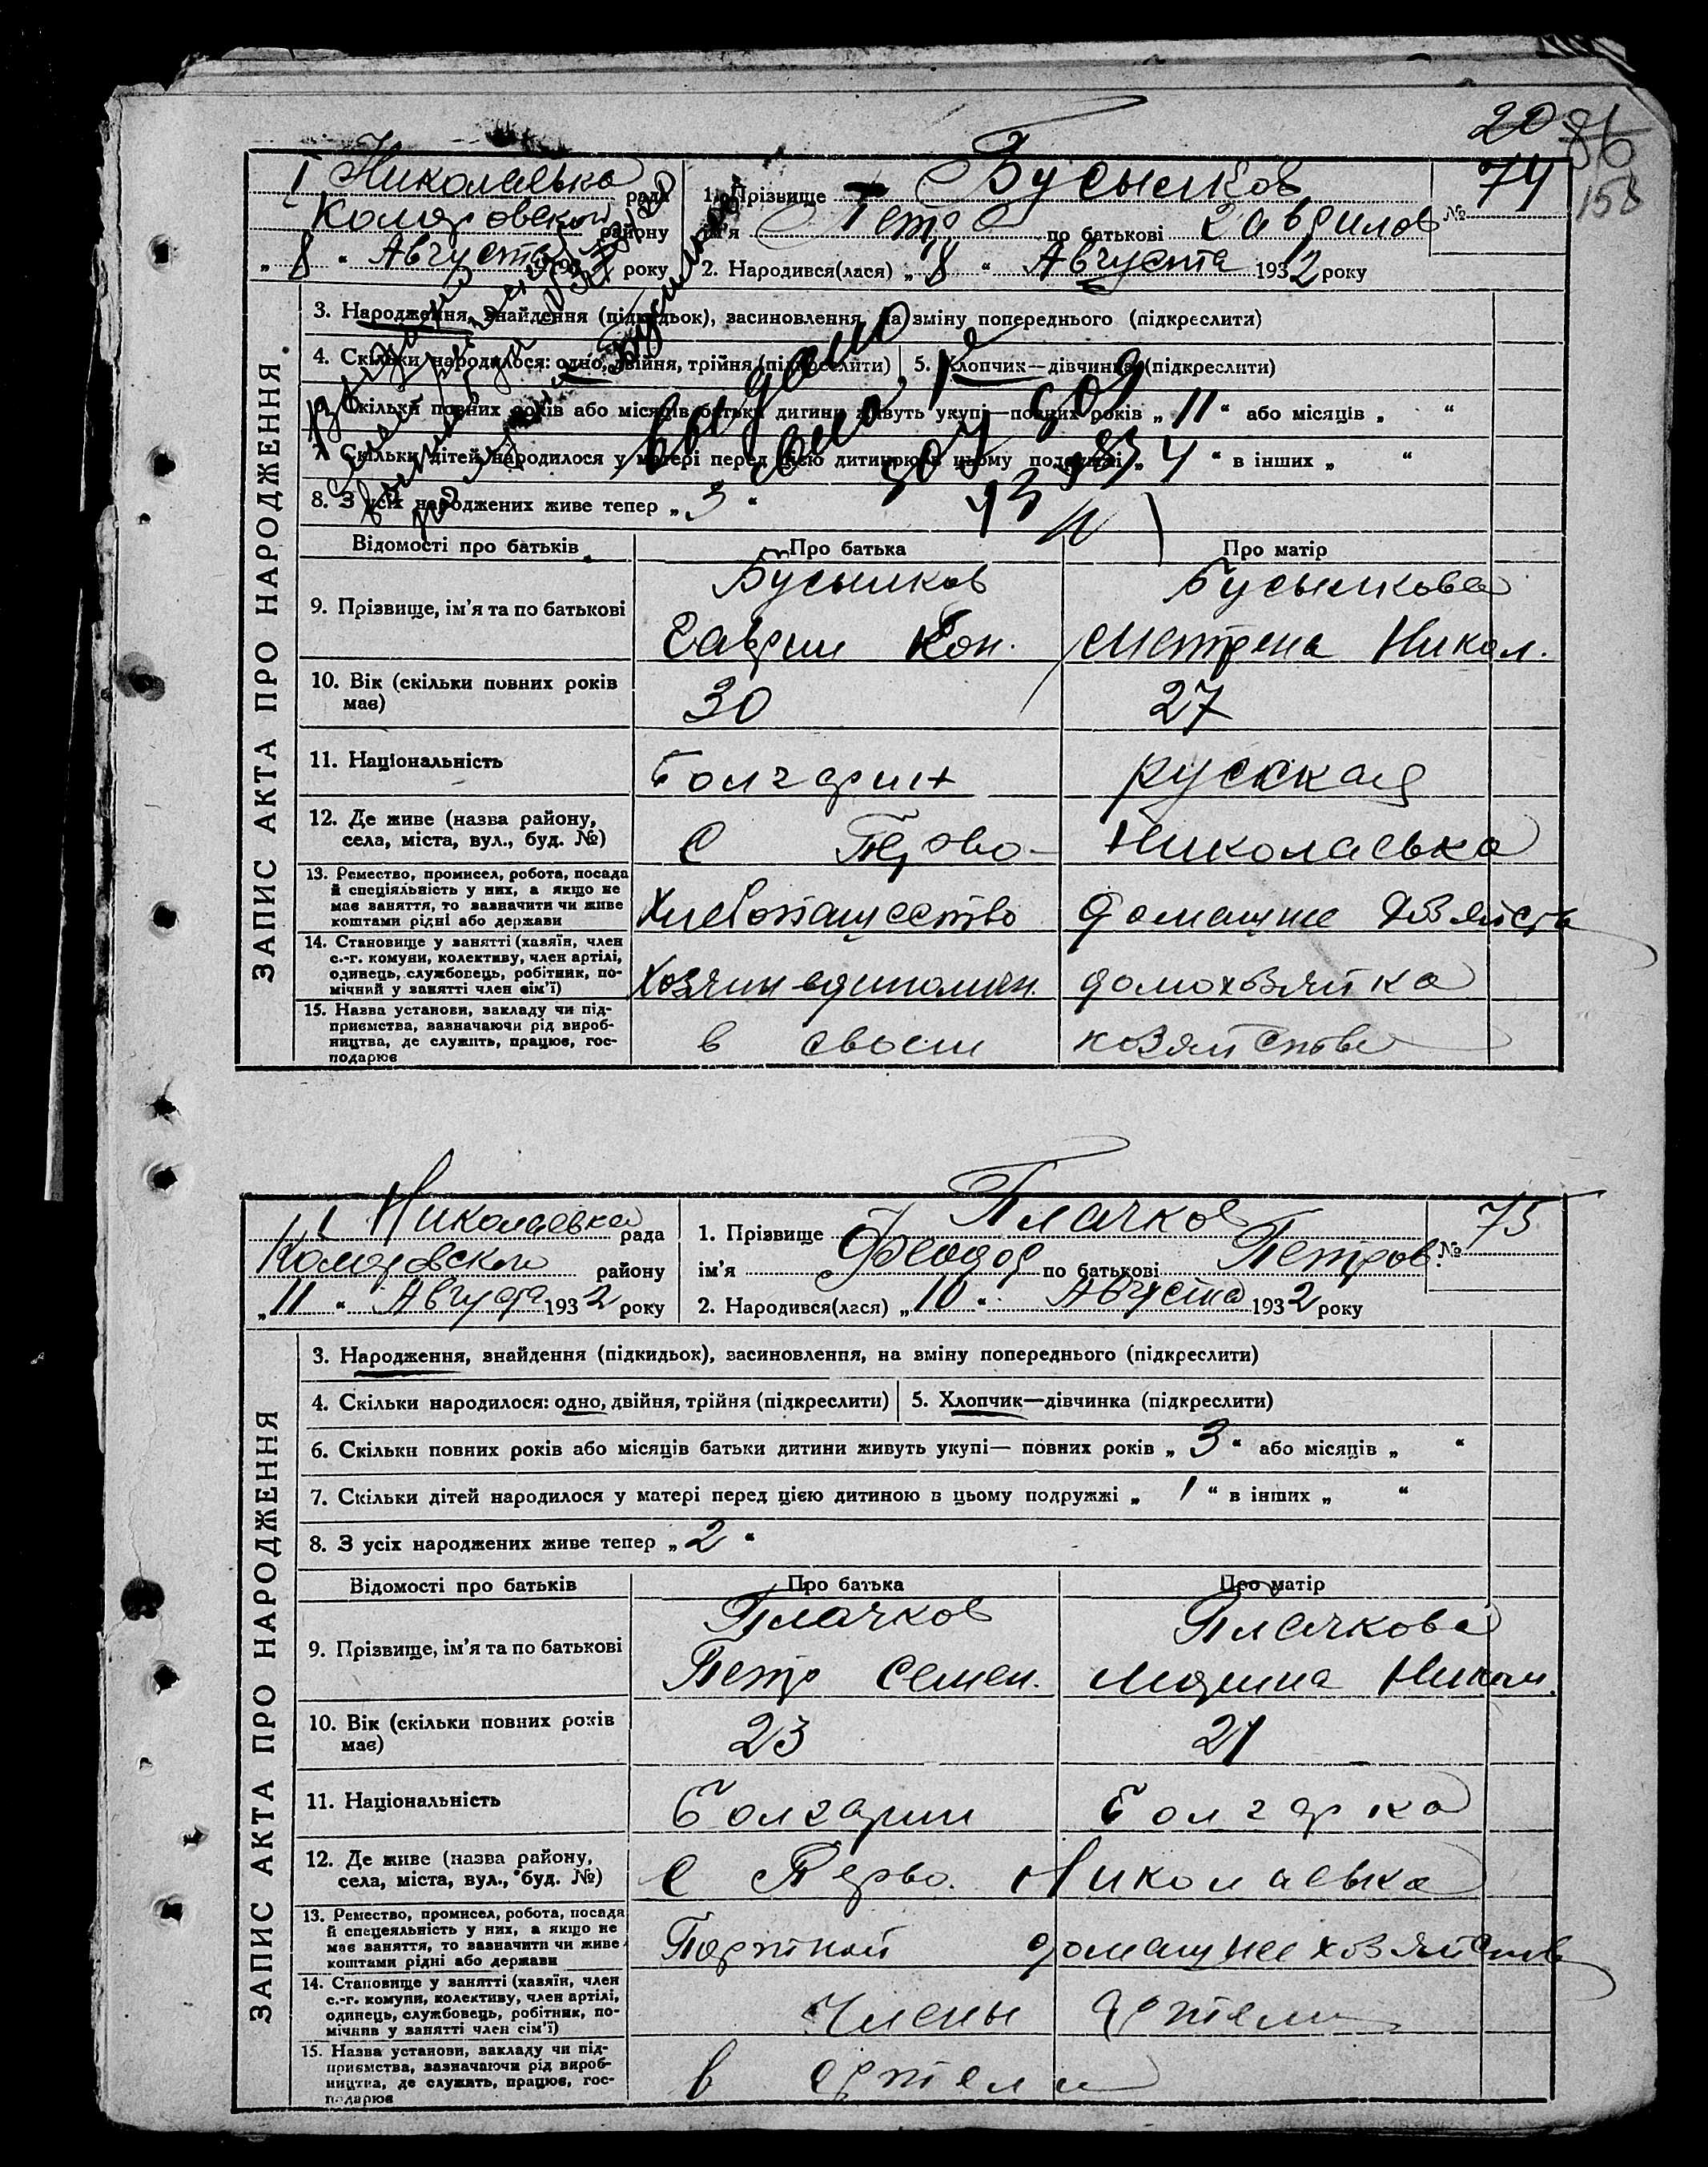 20
86
158
I Николаевка рада
Коларовский району
„8“ Августа 1932 року
1. Прізвище Бусыщков
ім’я Петр по батькові Гаврилов
№ 74
2. Народився(лася) „8“ Августа 1932 року
ЗАПИС АКТА ПРО НАРОДЖЕННЯ
3. Народження, знайдення (підкидьок), засиновлення, на зміну попереднього (підкреслити)
4. Скільки народилося: одно, двійня, трійня (підкреслити) 5. Хлопчик—дівчинка (підкреслити)
6. Скільки повних років або місяців батьки дитини живуть укупі—повних років „11“ або місяців „ “
7. Скільки дітей народилося у матері перед цією дитиною в цьому подружжі „4“ в інших „ “
8. З усіх народжених живе тепер „3“
Відомості про батьків Про батька Про матір
9. Прізвище, ім’я та по батькові
Гаврил Кон. Мотрена Никол.
10. Вік (скільки повних років має) 30 27
11. Національність Болгарин русская
12. Де живе (назва району, села, міста, вул., буд. №) С Перво-Николаевка
13. Ремество, промисел, робота, посада
й спеціяльність у них, а якщо не
має заняття, то зазначити чи живе
коштами рідні або держави
Хлебопашество домашнее хозяйств
14. Становище у занятті (хазяїн, член
с.-г. комуни, колективу, член артілі,
одинець, службовець, робітник, по-
мічний у занятті член сім’ї)
Хозяин единоличн. домохозяйка
15. Назва установи, закладу чи під-
приємства, зазначаючи рід вироб-
ництва, де служить, працює, гос-
подарює
в своем хозяйстве
I Николаевка рада
Коларовский району
„11“ Августа 1932 року
1. Прізвище Плачков
ім’я Феодор по батькові Петров.
№ 75
2. Народився(лася) „10“ Августа 1932 року
ЗАПИС АКТА ПРО НАРОДЖЕННЯ
3. Народження, знайдення (підкидьок), засиновлення, на зміну попереднього (підкреслити)
4. Скільки народилося: одно, двійня, трійня (підкреслити) 5. Хлопчик—дівчинка (підкреслити)
6. Скільки повних років або місяців батьки дитини живуть укупі— повних років „3“ або місяців „ “
7. Скільки дітей народилося у матері перед цією дитиною в цьому подружжі „1“ в інших „ “
8. З усіх народжених живе тепер „2“
Відомості про батьків Про батька Про матір
9. Прізвище, ім’я та по батькові Плачков Плачкова
Петр Семен. Марина Никол.
10. Вік (скільки повних років має) 23 21
11. Національність Болгарин Болгарка
12. Де живе (назва району, села, міста, вул., буд. №) С Перво. Николаевка
13. Ремество, промисел, робота, посада
й спецеяльність у них, а якщо не
має заняття, то зазначити чи живе
коштами рідні або держави
Портной домашнее хозяйств
14. Становище у занятті (хазяїн, член
с.-г. комуни, колективу, член артілі,
одинець, службовець, робітник, по-
мічний у занятті член сім’ї)
Члены артели
15. Назва установи, закладу чи під-
приємства, зазначаючи рід вироб-
ництва, де служить, працює, гос-
подарює
в артели